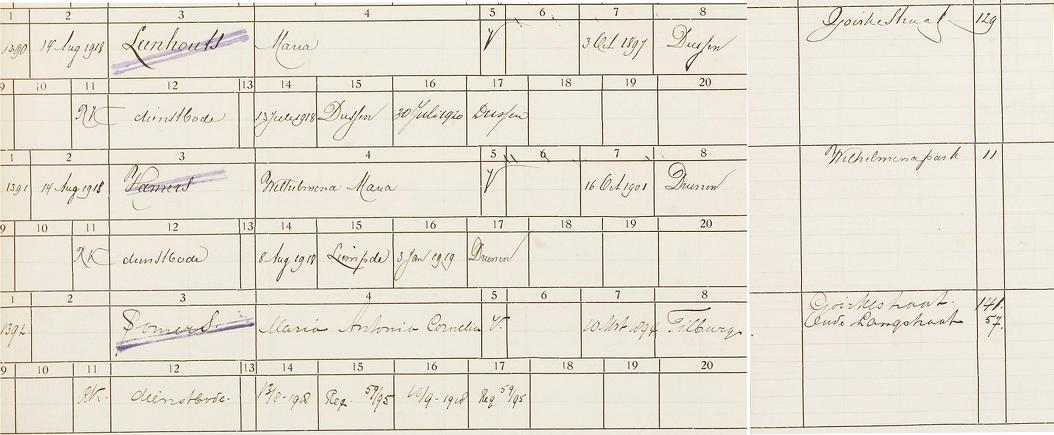 1 2 3 4 5 6 7 8
1390 14 Aug 1918 Leenhouts Maria V 3 Oct 1897 Dussen Goirkestraat 129
9 10 11 12 13 14 15 16 17 18 19 20
RK dienstbode 13 Juli 1918 Dussen 30 Juli 1920 Dussen
1 2 3 4 5 6 7 8
1391 14 Aug 1918 Hamers Wilhelmina Maria V 16 Oct 1901 Drunen Wilhelminapark 11
9 10 11 12 13 14 15 16 17 18 19 20
RK dienstbode 8 Aug 1918 Liempde 3 Jan 1919 Drunen
1 2 3 4 5 6 7 8
1392 Somers Maria Antonia Cornelia V. 10 Tilburg Goirkestraat. 141.
Oude Langstraat 57.
9 10 11 12 13 14 15 16 17 18 19 20
RK. dienstbode. 13/8-1918 Reg. 59/95 10/9-1918 Reg 59/95